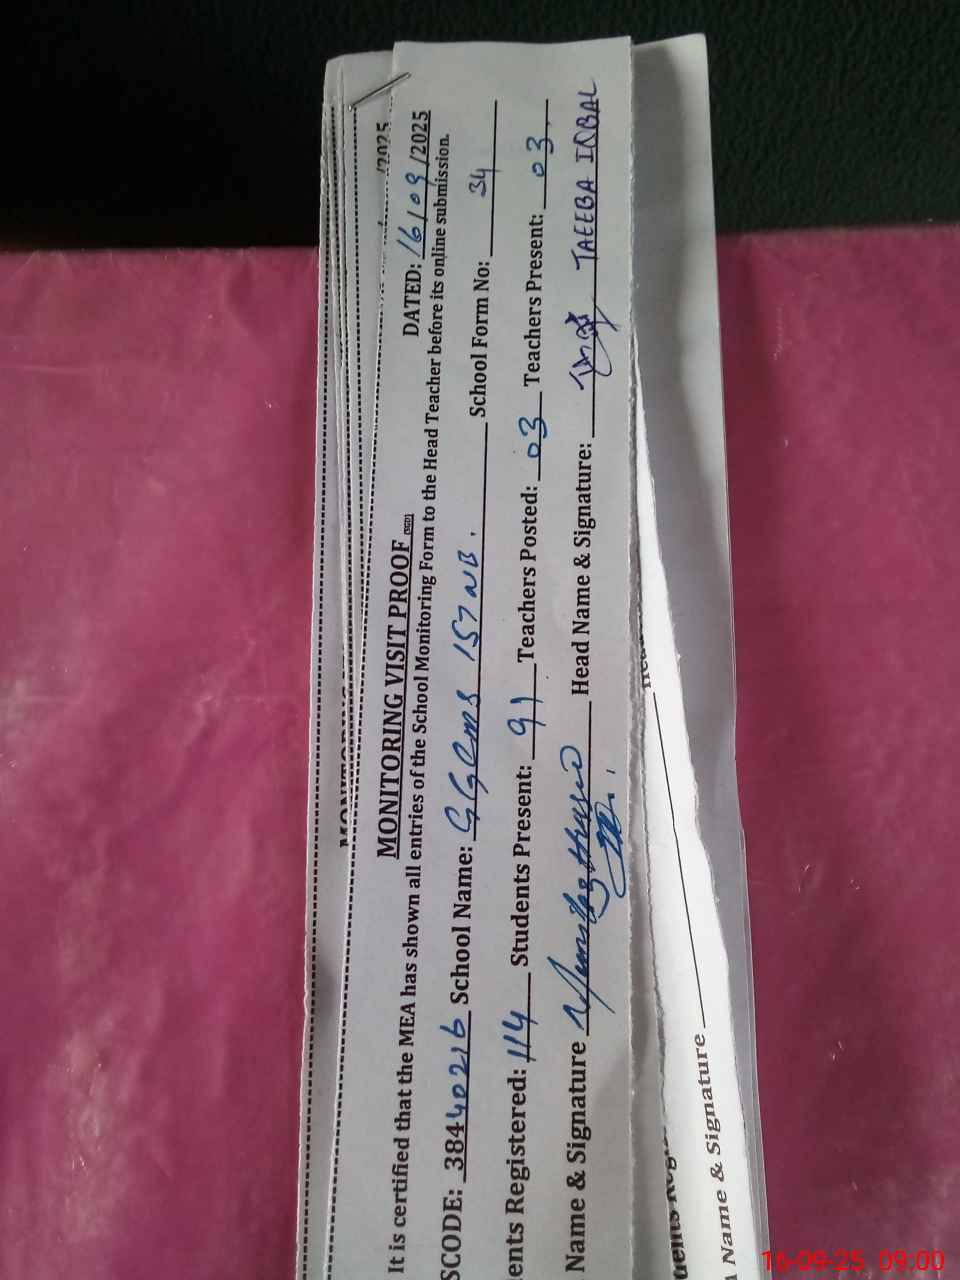 /2025
MONITORING
MONITORING VISIT PROOF (SGD) DATED: 16/09/2025
It is certified that the MEA has shown all entries of the School Monitoring Form to the Head Teacher before its online submission.
SCODE: 38440216 School Name: GGCMS 157 NB. School Form No: 34
ents Registered: 114 Students Present: 91 Teachers Posted: 03 Teachers Present: 03.
Name & Signature Head Name & Signature: TAEEBA IQBAL
Name & Signature
16-09-25 09:00